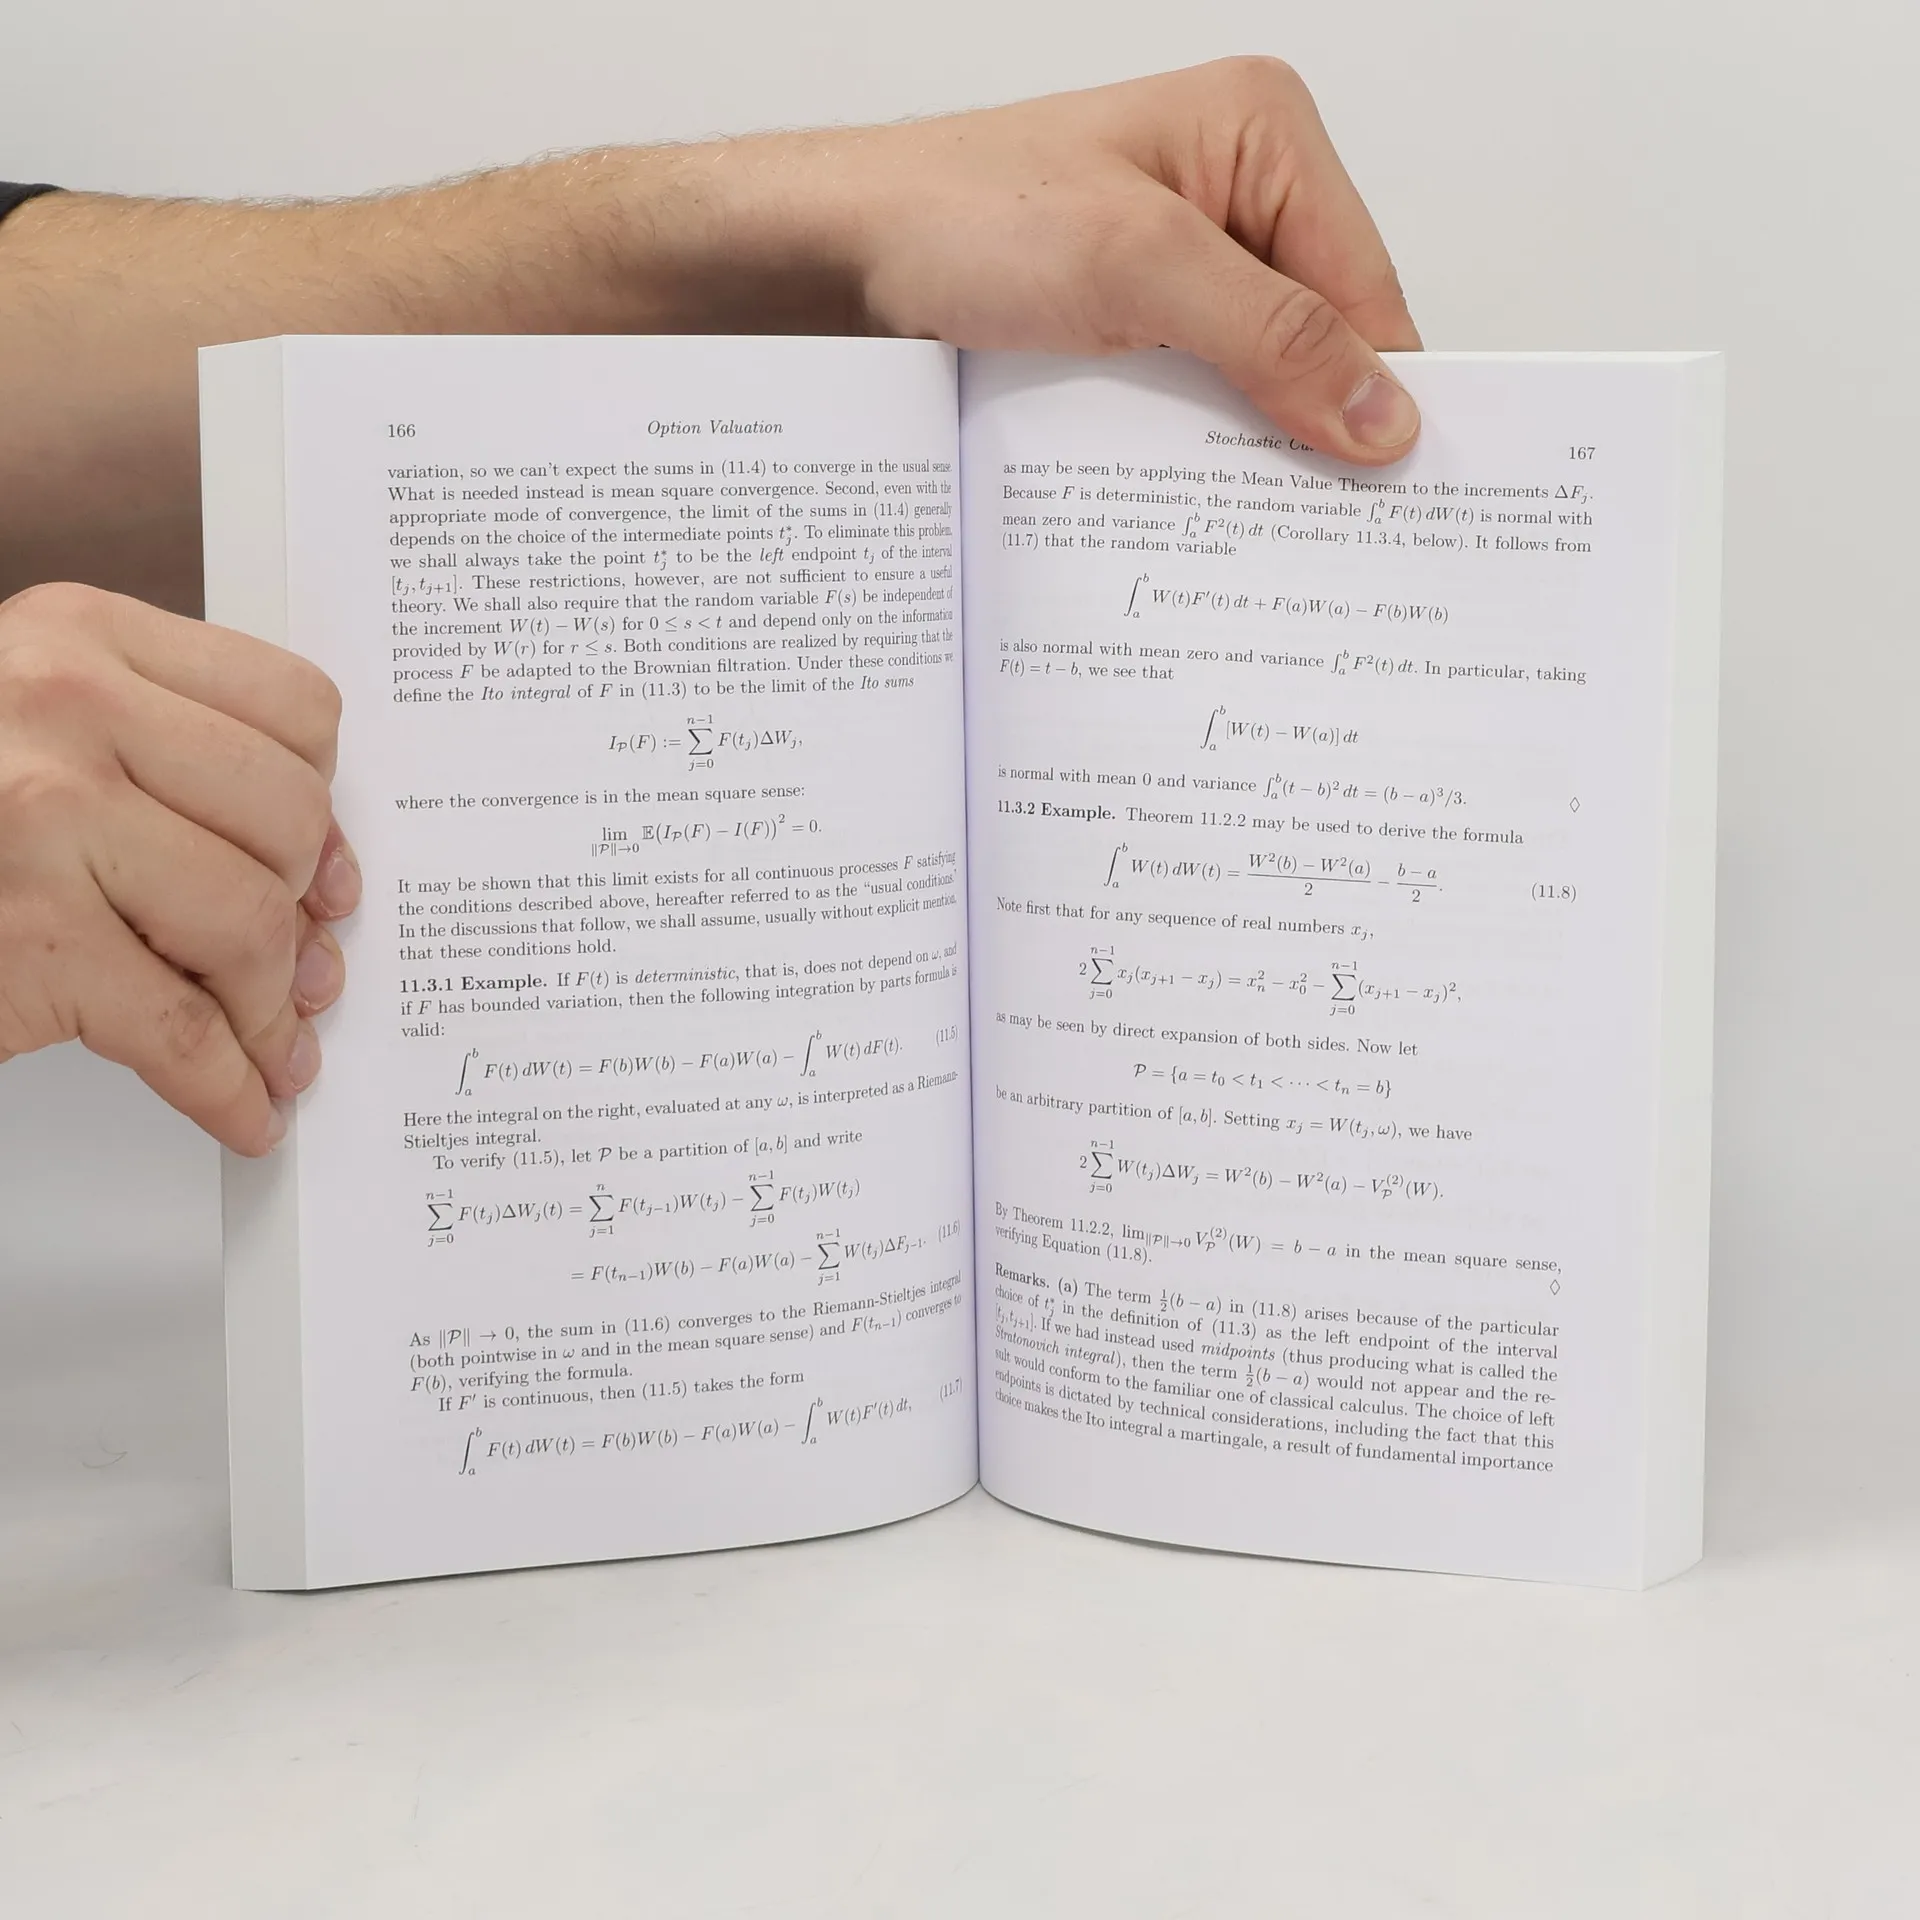 166 Option Valuation
variation, so we can't expect the sums in (11.4) to converge in the usual sense.
What is needed instead is mean square convergence. Second, even with the
appropriate mode of convergence, the limit of the sums in (11.4) generally
depends on the choice of the intermediate points t*_j. To eliminate this problem,
we shall always take the point t*_j to be the left endpoint t_j of the interval
[t_j, t_{j+1}]. These restrictions, however, are not sufficient to ensure a useful
theory. We shall also require that the random variable F(s) be independent of
the increment W(t) − W(s) for 0 ≤ s < t and depend only on the information
provided by W(r) for r ≤ s. Both conditions are realized by requiring that the
process F be adapted to the Brownian filtration. Under these conditions we
define the Ito integral of F in (11.3) to be the limit of the Ito sums
I_P(F) := ∑_{j=0}^{n−1} F(t_j)ΔW_j,
where the convergence is in the mean square sense:
lim_{‖P‖→0} 𝔼(I_P(F) − I(F))² = 0.
It may be shown that this limit exists for all continuous processes F satisfying
the conditions described above, hereafter referred to as the “usual conditions.”
In the discussions that follow, we shall assume, usually without explicit mention,
that these conditions hold.
11.3.1 Example. If F(t) is deterministic, that is, does not depend on ω, and
if F has bounded variation, then the following integration by parts formula is
valid:
∫_a^b F(t) dW(t) = F(b)W(b) − F(a)W(a) − ∫_a^b W(t) dF(t). (11.5)
Here the integral on the right, evaluated at any ω, is interpreted as a Riemann-
Stieltjes integral.
To verify (11.5), let P be a partition of [a, b] and write
∑_{j=0}^{n−1} F(t_j)ΔW_j(t) = ∑_{j=1}^{n} F(t_{j−1})W(t_j) − ∑_{j=0}^{n−1} F(t_j)W(t_j)
= F(t_{n−1})W(b) − F(a)W(a) − ∑_{j=1}^{n−1} W(t_j)ΔF_{j−1}. (11.6)
As ‖P‖ → 0, the sum in (11.6) converges to the Riemann-Stieltjes integral
(both pointwise in ω and in the mean square sense) and F(t_{n−1}) converges to
F(b), verifying the formula.
If F′ is continuous, then (11.5) takes the form
∫_a^b F(t) dW(t) = F(b)W(b) − F(a)W(a) − ∫_a^b W(t)F′(t) dt, (11.7)
Stochastic 167
as may be seen by applying the Mean Value Theorem to the increments ΔF_j.
Because F is deterministic, the random variable ∫_a^b F(t) dW(t) is normal with
mean zero and variance ∫_a^b F²(t) dt (Corollary 11.3.4, below). It follows from
(11.7) that the random variable
∫_a^b W(t)F′(t) dt + F(a)W(a) − F(b)W(b)
is also normal with mean zero and variance ∫_a^b F²(t) dt. In particular, taking
F(t) = t − b, we see that
∫_a^b [W(t) − W(a)] dt
is normal with mean 0 and variance ∫_a^b (t − b)² dt = (b − a)³/3. ◇
11.3.2 Example. Theorem 11.2.2 may be used to derive the formula
∫_a^b W(t) dW(t) = (W²(b) − W²(a))/2 − (b − a)/2. (11.8)
Note first that for any sequence of real numbers x_j,
2∑_{j=0}^{n−1} x_j(x_{j+1} − x_j) = x_n² − x_0² − ∑_{j=0}^{n−1} (x_{j+1} − x_j)²,
as may be seen by direct expansion of both sides. Now let
P = {a = t_0 < t_1 < ⋯ < t_n = b}
be an arbitrary partition of [a, b]. Setting x_j = W(t_j, ω), we have
2∑_{j=0}^{n−1} W(t_j)ΔW_j = W²(b) − W²(a) − V_P^{(2)}(W).
By Theorem 11.2.2, lim_{‖P‖→0} V_P^{(2)}(W) = b − a in the mean square sense,
verifying Equation (11.8). ◇
Remarks. (a) The term ½(b − a) in (11.8) arises because of the particular
choice of t*_j in the definition of (11.3) as the left endpoint of the interval
[t_j, t_{j+1}]. If we had instead used midpoints (thus producing what is called the
Stratonovich integral), then the term ½(b − a) would not appear and the re-
sult would conform to the familiar one of classical calculus. The choice of left
endpoints is dictated by technical considerations, including the fact that this
choice makes the Ito integral a martingale, a result of fundamental importance